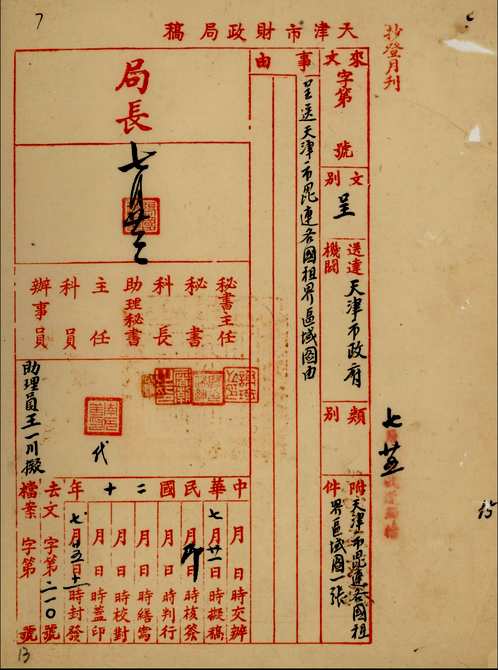 7
抄登月刊
天津市財政局稿
來文 字第 號
文別 呈
送達機關 天津市政府
類別
附件 天津市毘連各國租界區域圖一張
事由
呈送天津市毘連各國租界區域圖由
局長
七月廿二
秘書主任
秘書
科長
助理秘書
主任
科員
辦事員
代
助理員王一川擬
中華民國二十年
月 日 時交辦
七月廿一日 時擬稿
月 日 時核簽
月 日 時判行
月 日 時繕寫
月 日 時校對
月 日 時蓋印
七月廿五日十一時封發
去文 字第二一〇號
檔案 字第 號
七 廿五
13